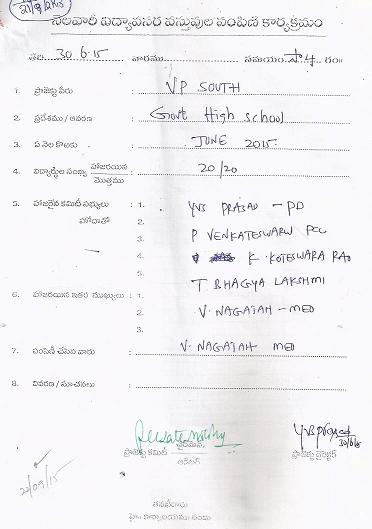 21/9/2015
నెలవారీ విద్యావసర వస్తువుల పంపిణీ కార్యక్రమం
తేది. 30.6.15 వారము సమయం. సా 4 గం॥
1. ప్రాజెక్టు పేరు : VP SOUTH
2. ప్రదేశము / ఆవరణ : Govt High school
3. ఏ నెల కొరకు : JUNE 2015
4. విద్యార్థుల సంఖ్య హాజరయిన / మొత్తము : 20/20
5. హాజరైన కమిటీ సభ్యులు : 1. YVB PRASAD - PD
హోదాతో 2.
3. P VENKATESWARU PCC
4. K. KOTESWARA RAO
5. T BHAGYA LAKSHMI
6. హాజరయిన ఇతర ముఖ్యులు : 1.
2. V. NAGAIAH - MEO
3.
7. పంపిణీ చేసిన వారు : V. NAGAIAH MEO
8. వివరణ / సూచనలు :
ప్రాజెక్టు కమిటీ ఛైర్మన్
ఆడిటర్
ప్రాజెక్టు డైరెక్టర్
30/6/15
22/09/15